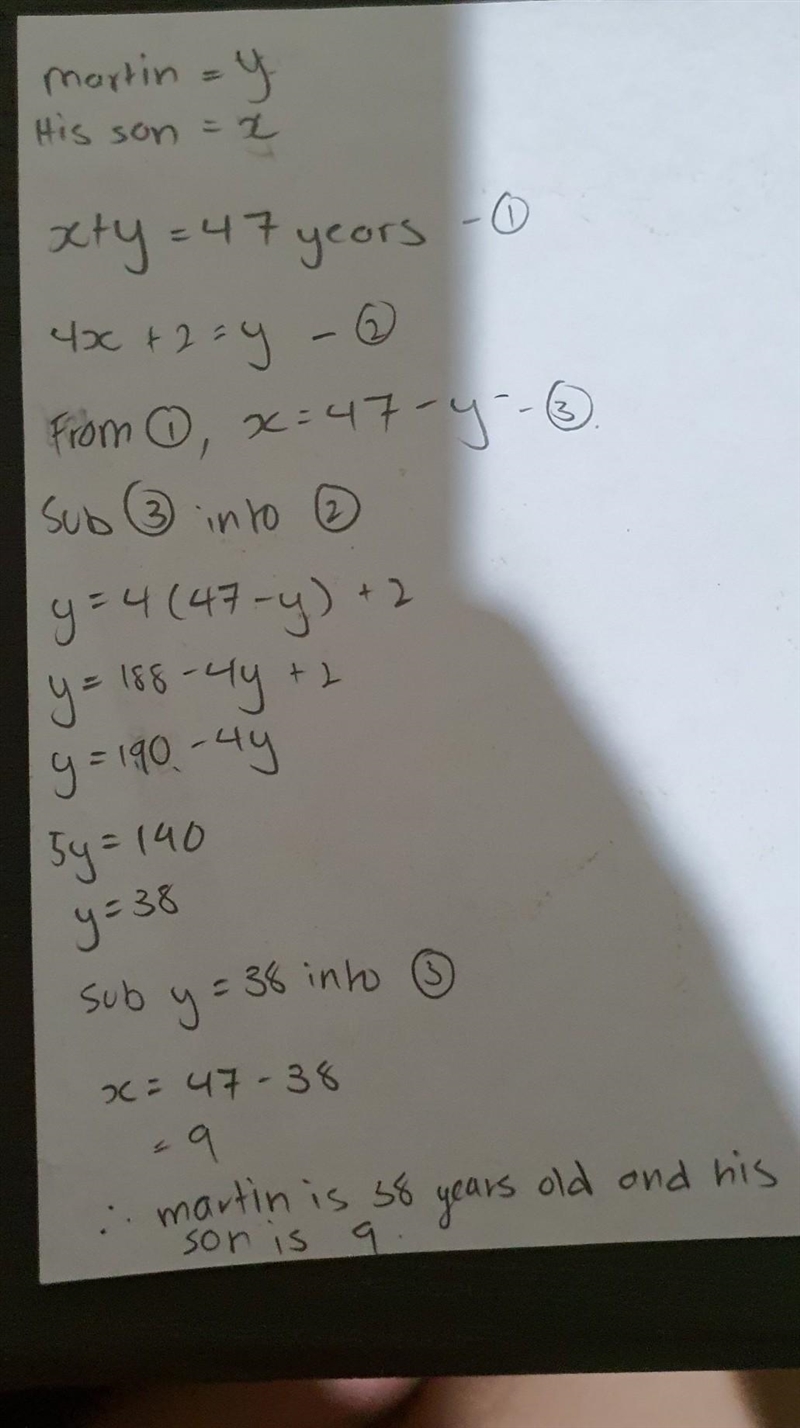 martin = y
His son = x
x+y = 47 years - ①
4x + 2 = y - ②
From ①, x = 47 - y - ③.
Sub ③ into ②
y = 4 (47 - y) + 2
y = 188 - 4y + 2
y = 190 - 4y
5y = 190
y = 38
Sub y = 38 into ③
x = 47 - 38
= 9
∴ martin is 38 years old and his
son is 9.